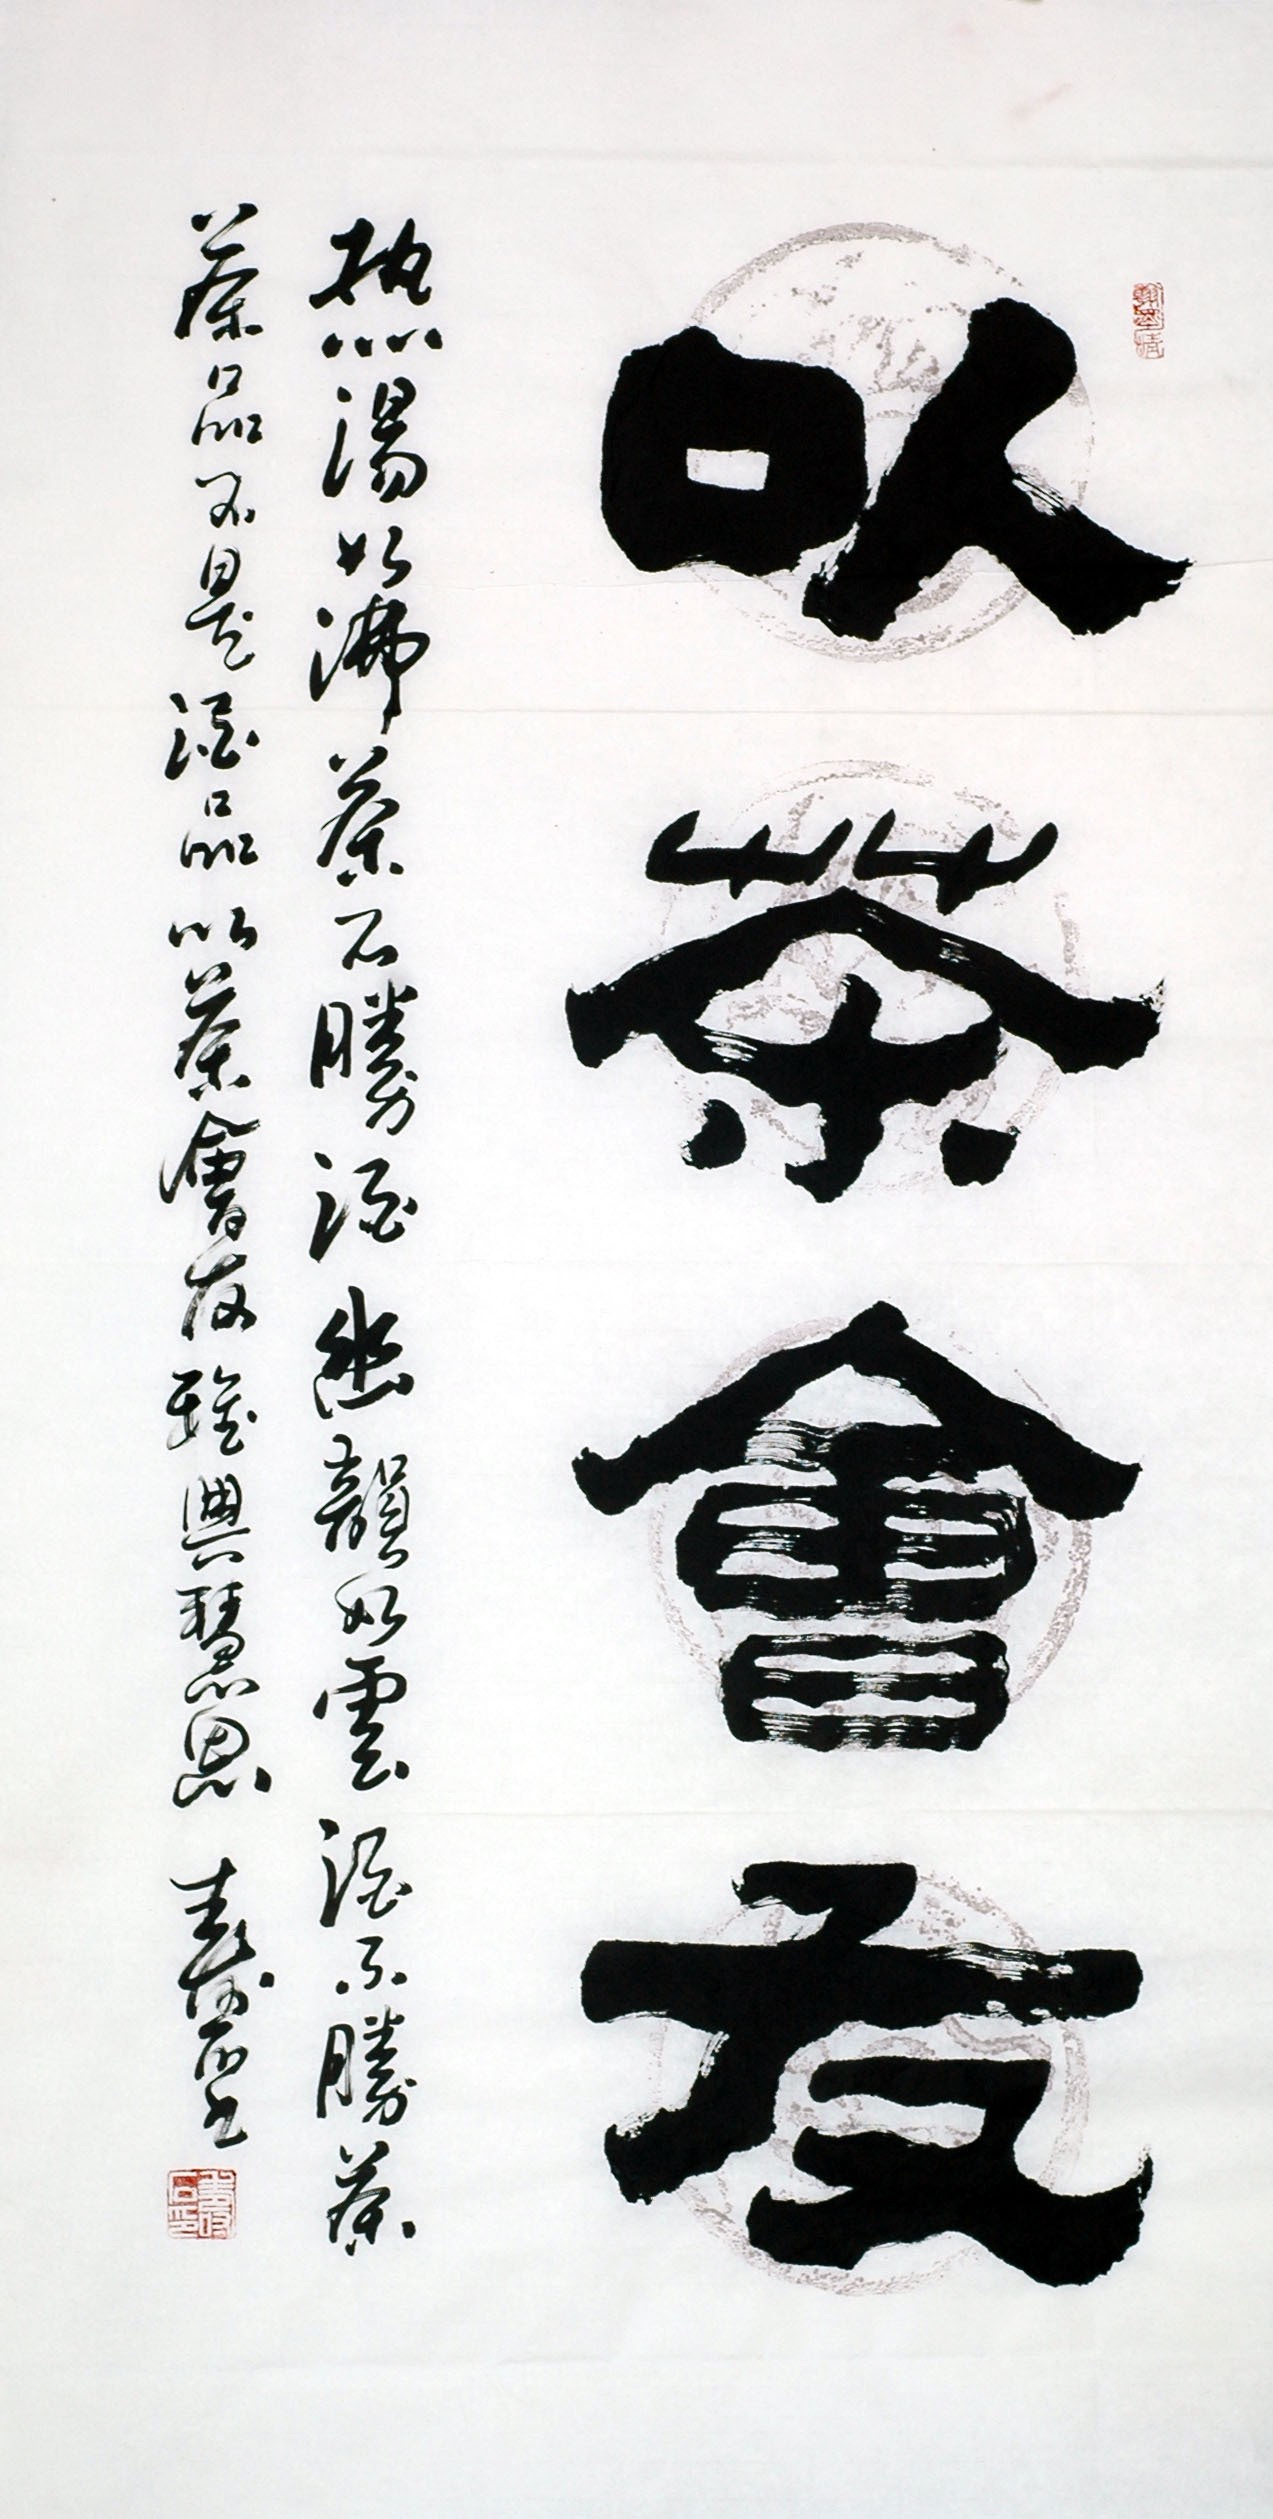 以茶會友
熱湯如沸茶不勝酒幽韻如雲酒不勝茶
茶品不是酒品以茶會友雅興慧思